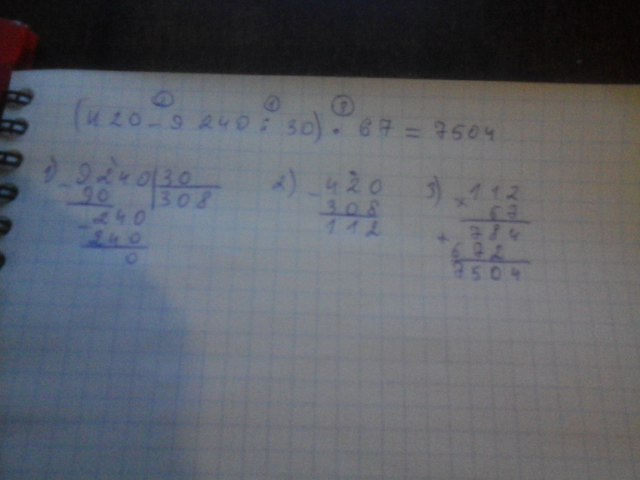 ② ① ③
(420 - 9 240 : 30) · 67 = 7504
1) - 9240 | 30
90 | 308
- 240
240
0
2) - 420
308
112
3) × 112
67
+ 784
672
7504